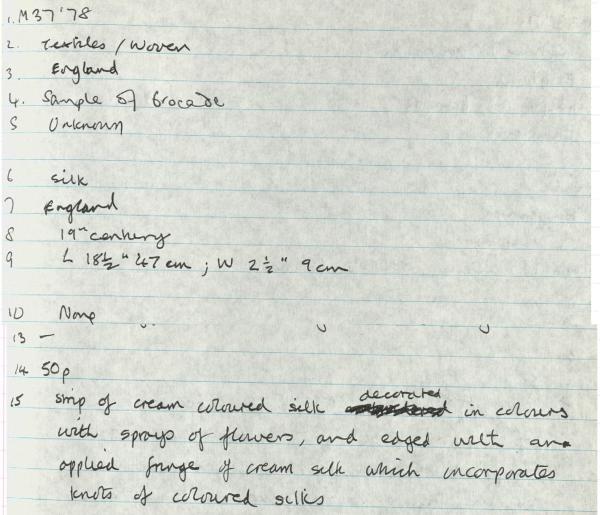 1. M37'78
2. Textiles / Woven
3. England
4. Sample of Brocade
5 Unknown
6 silk
7 England
8 19th century
9 L 18½" 47 cm ; W 2½" 9 cm
10 None
13 —
14 50p
15 strip of cream coloured silk decorated in colours
with sprays of flowers, and edged with an
applied fringe of cream silk which incorporates
knots of coloured silks